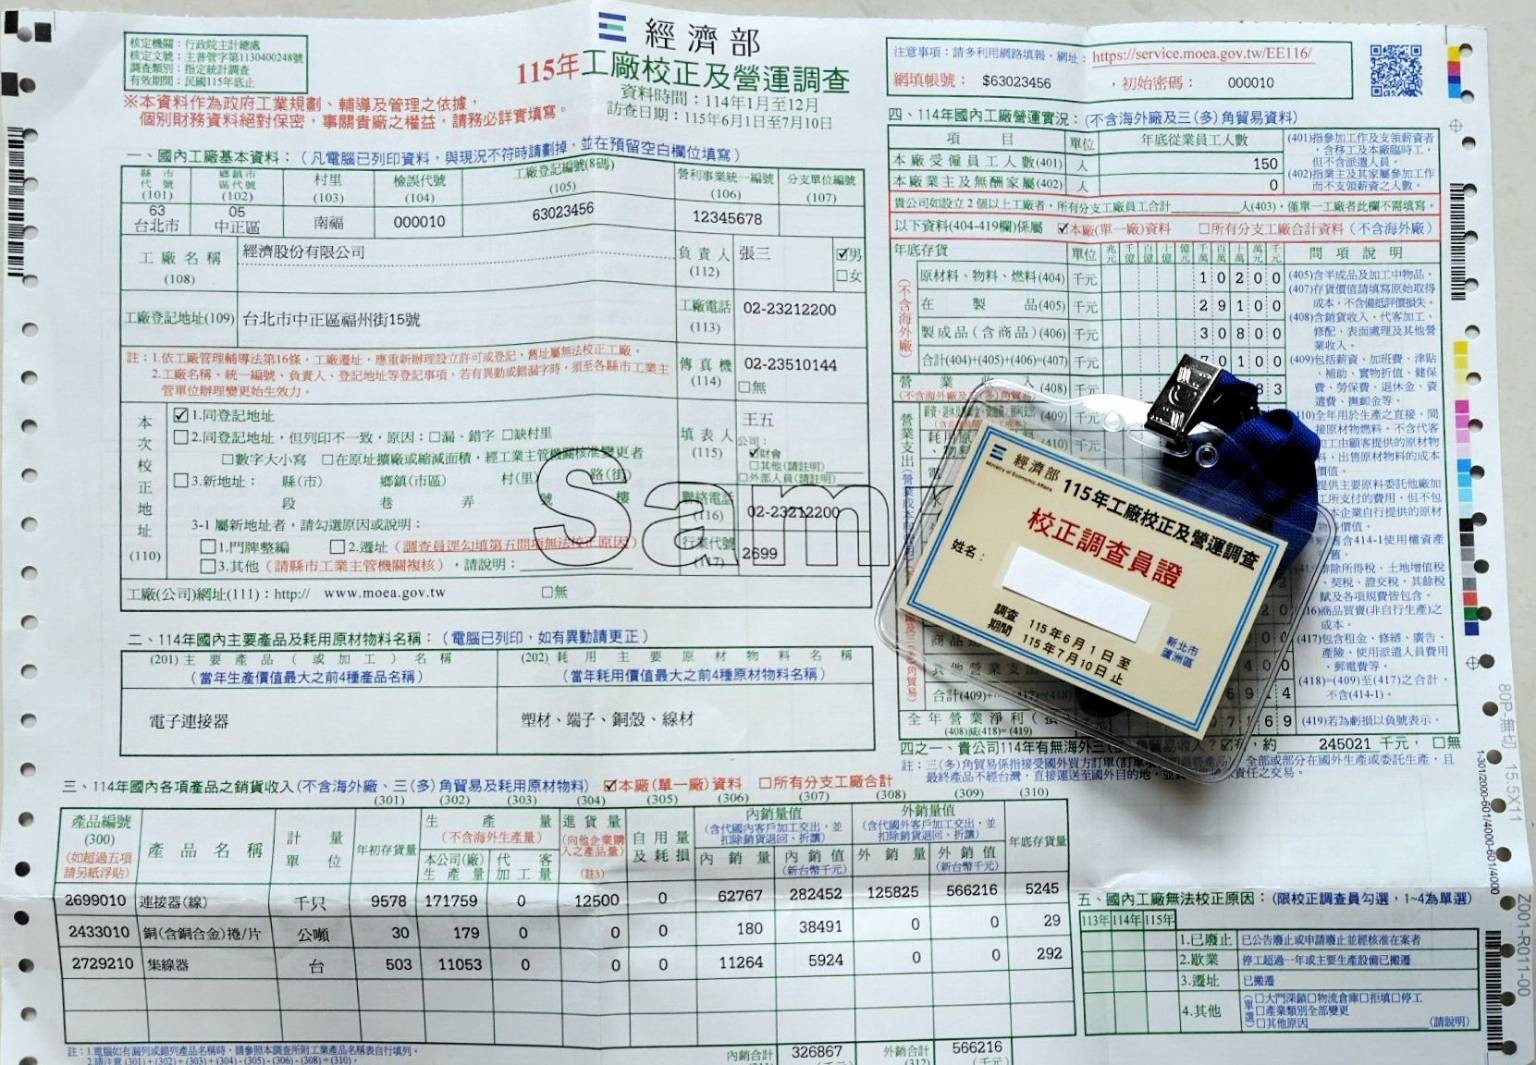 核定機關：行政院主計總處
核定文號：主普管字第1130400248號
調查類別：指定統計調查
有效期間：民國115年底止
經濟部
115年工廠校正及營運調查
資料時間：114年1月至12月
訪查日期：115年6月1日至7月10日
※本資料作為政府工業規劃、輔導及管理之依據，
個別財務資料絕對保密，事關貴廠之權益，請務必詳實填寫。
注意事項：請多利用網路填報，網址：https://service.moea.gov.tw/EE116/
網填帳號： $63023456 ，初始密碼： 000010
一、國內工廠基本資料：（凡電腦已列印資料，與現況不符時請劃掉，並在預留空白欄位填寫）
縣市代號(101) 鄉鎮市區代號(102) 村里(103) 檢誤代號(104) 工廠登記編號(8碼)(105) 營利事業統一編號(106) 分支單位編號(107)
63 台北市 05 中正區 南福 000010 63023456 12345678
工廠名稱(108) 經濟股份有限公司 負責人(112) 張三 ☑男 □女
工廠登記地址(109) 台北市中正區福州街15號 工廠電話(113) 02-23212200
註：1.依工廠管理輔導法第16條，工廠遷址，應重新辦理設立許可或登記，舊址屬無法校正工廠。
2.工廠名稱、統一編號、負責人、登記地址等登記事項，若有異動或錯漏字時，須至各縣市工業主
管單位辦理變更始生效力。
傳真機(114) 02-23510144 □無
本次校正地址(110)
☑1.同登記地址
□2.同登記地址，但列印不一致，原因：□漏、錯字 □缺村里
□數字大小寫 □在原址擴廠或縮減面積，經工業主管機關核准變更者
□3.新地址： 縣(市) 鄉鎮(市區) 村(里) 路(街)
段 巷 弄 號 樓
3-1 屬新地址者，請勾選原因或說明：
□1.門牌整編 □2.遷址（調查員逕勾填第五問項無法校正原因）
□3.其他（請縣市工業主管機關複核），請說明：
填表人(115) 王五
公司：
☑財會
□其他(請註明)
□外部人員(請註明)
聯絡電話(116) 02-23212200
行業代號 2699
工廠(公司)網址(111)：http:// www.moea.gov.tw □無
二、114年國內主要產品及耗用原材物料名稱：（電腦已列印，如有異動請更正）
(201)主要產品（或加工）名稱
（當年生產價值最大之前4種產品名稱）
(202)耗用主要原材物料名稱
（當年耗用價值最大之前4種原材物料名稱）
電子連接器 塑材、端子、銅殼、線材
四、114年國內工廠營運實況：(不含海外廠及三(多)角貿易資料)
項目 單位 年底從業員工人數
本廠受僱員工人數(401) 人 150
本廠業主及無酬家屬(402) 人 0
(401)指參加工作及支領薪資者
，含移工及本廠臨時工，
但不含派遣人員。
(402)指業主及其家屬參加工作
而不支領薪資之人數。
貴公司如設立２個以上工廠者，所有分支工廠員工合計 人(403)，僅單一工廠者此欄不需填寫。
以下資料(404-419欄)係屬 ☑本廠(單一廠)資料 □所有分支工廠合計資料（不含海外廠）
年底存貨 單位 兆元 千億 百億 十億 億元 千萬 百萬 十萬 萬元 千元 問項說明
(不含海外廠)
原材料、物料、燃料(404) 千元 10200
在製品(405) 千元 29100
製成品(含商品)(406) 千元 30800
合計(404)+(405)+(406)=(407) 千元 70100
營業收入(408) 千元
(405)含半成品及加工中物品。
(407)存貨價值請填寫原始取得
成本，不含備抵評價損失。
(408)含銷貨收入、代客加工、
修配、表面處理及其他營
業收入。
(409)包括薪資、加班費、津貼
、補助、實物折值、健保
費、勞保費、退休金、資
遣費、撫卹金等。
(417)包含租金、修繕、廣告、
產險、使用派遣人員費用
、郵電費等。
(418)=(409)至(417)之合計，
不含(414-1)。
(419)若為虧損以負號表示。
全年營業淨利
(408)減(418)=(419) 07169
四之一、貴公司114年有無海外三(多)角貿易收入？☑有，約 245021 千元，□無
註：三(多)角貿易係指接受國外買方訂單
最終產品不經台灣，直接運送至國外目的地
經濟部
Ministry of Economic Affairs
115年工廠校正及營運調查
校正調查員證
姓名：
調查期間 115年6月1日至
115年7月10日止
新北市
蘆洲區
三、114年國內各項產品之銷貨收入(不含海外廠、三(多)角貿易及耗用原材物料) ☑本廠(單一廠)資料 □所有分支工廠合計
(301) (302) (303) (304) (305) (306) (307) (308) (309) (310)
產品編號(300)
(如超過五項請另紙浮貼)
產品名稱 計量單位 年初存貨量
生產量(不含海外生產量)
本公司(廠)生產量 代客加工量
進貨量(向他企業購入之產品量)(註3)
自用量及耗損
內銷量值(含代國內客戶加工交出，並扣除銷貨退回、折讓)
內銷量 內銷值(新台幣千元)
外銷量值(含代國外客戶加工交出，並扣除銷貨退回、折讓)
外銷量 外銷值(新台幣千元)
年底存貨量
2699010 連接器(線) 千只 9578 171759 0 12500 0 62767 282452 125825 566216 5245
2433010 銅(含銅合金)捲/片 公噸 30 179 0 0 0 180 38491 0 0 29
2729210 集線器 台 503 11053 0 0 0 11264 5924 0 0 292
註：1.電腦如有漏列或錯列產品名稱時，請參照本調查所附工業產品名稱表自行填列。
內銷合計 326867
外銷合計 566216
五、國內工廠無法校正原因：(限校正調查員勾選，1~4為單選)
113年 114年 115年
1.已廢止 已公告廢止或申請廢止並經核准在案者
2.歇業 停工超過一年或主要生產設備已搬遷
3.遷址 已搬遷
4.其他 (單選) □大門深鎖□物流倉庫□拒填□停工
□產業類別全部變更
□其他原因 (請說明)